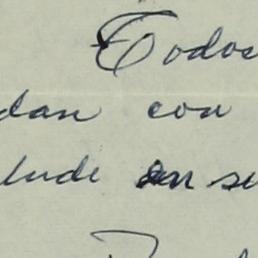 Todos
dan con
lude en su